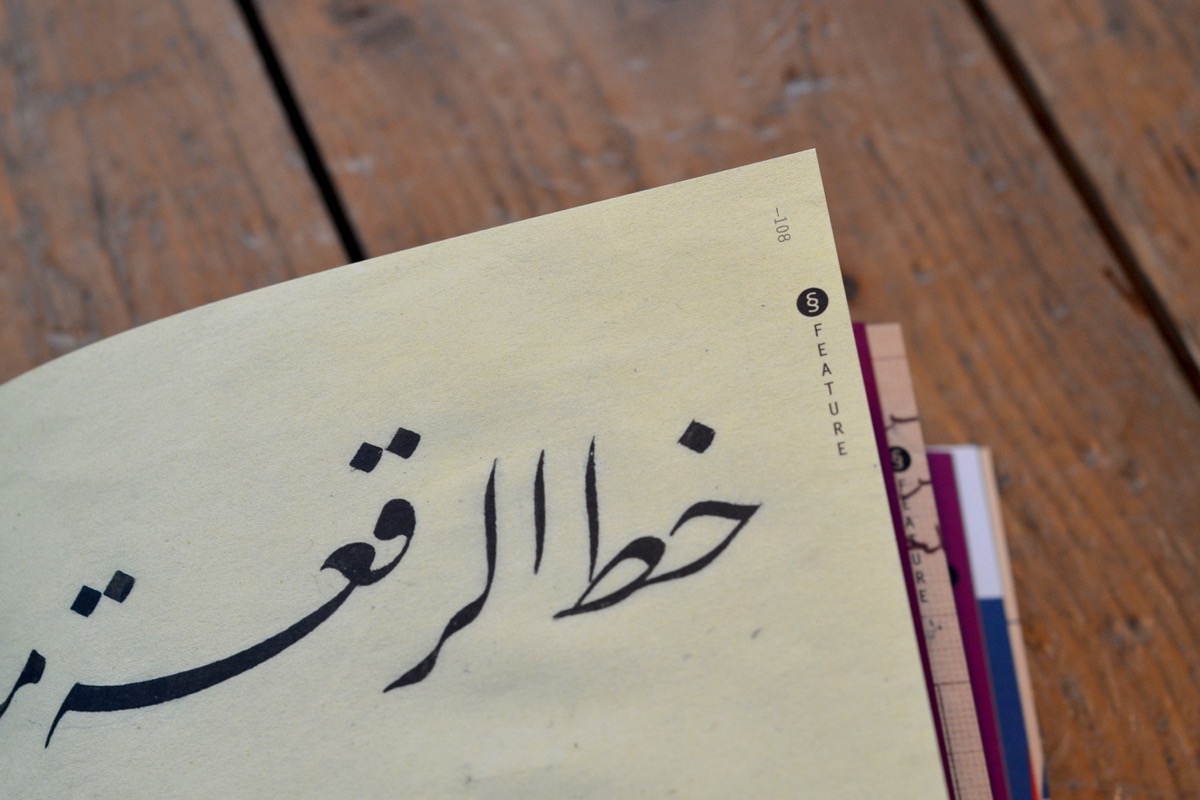 –108
§ FEATURE
خط الرقعة
§ FEATURE